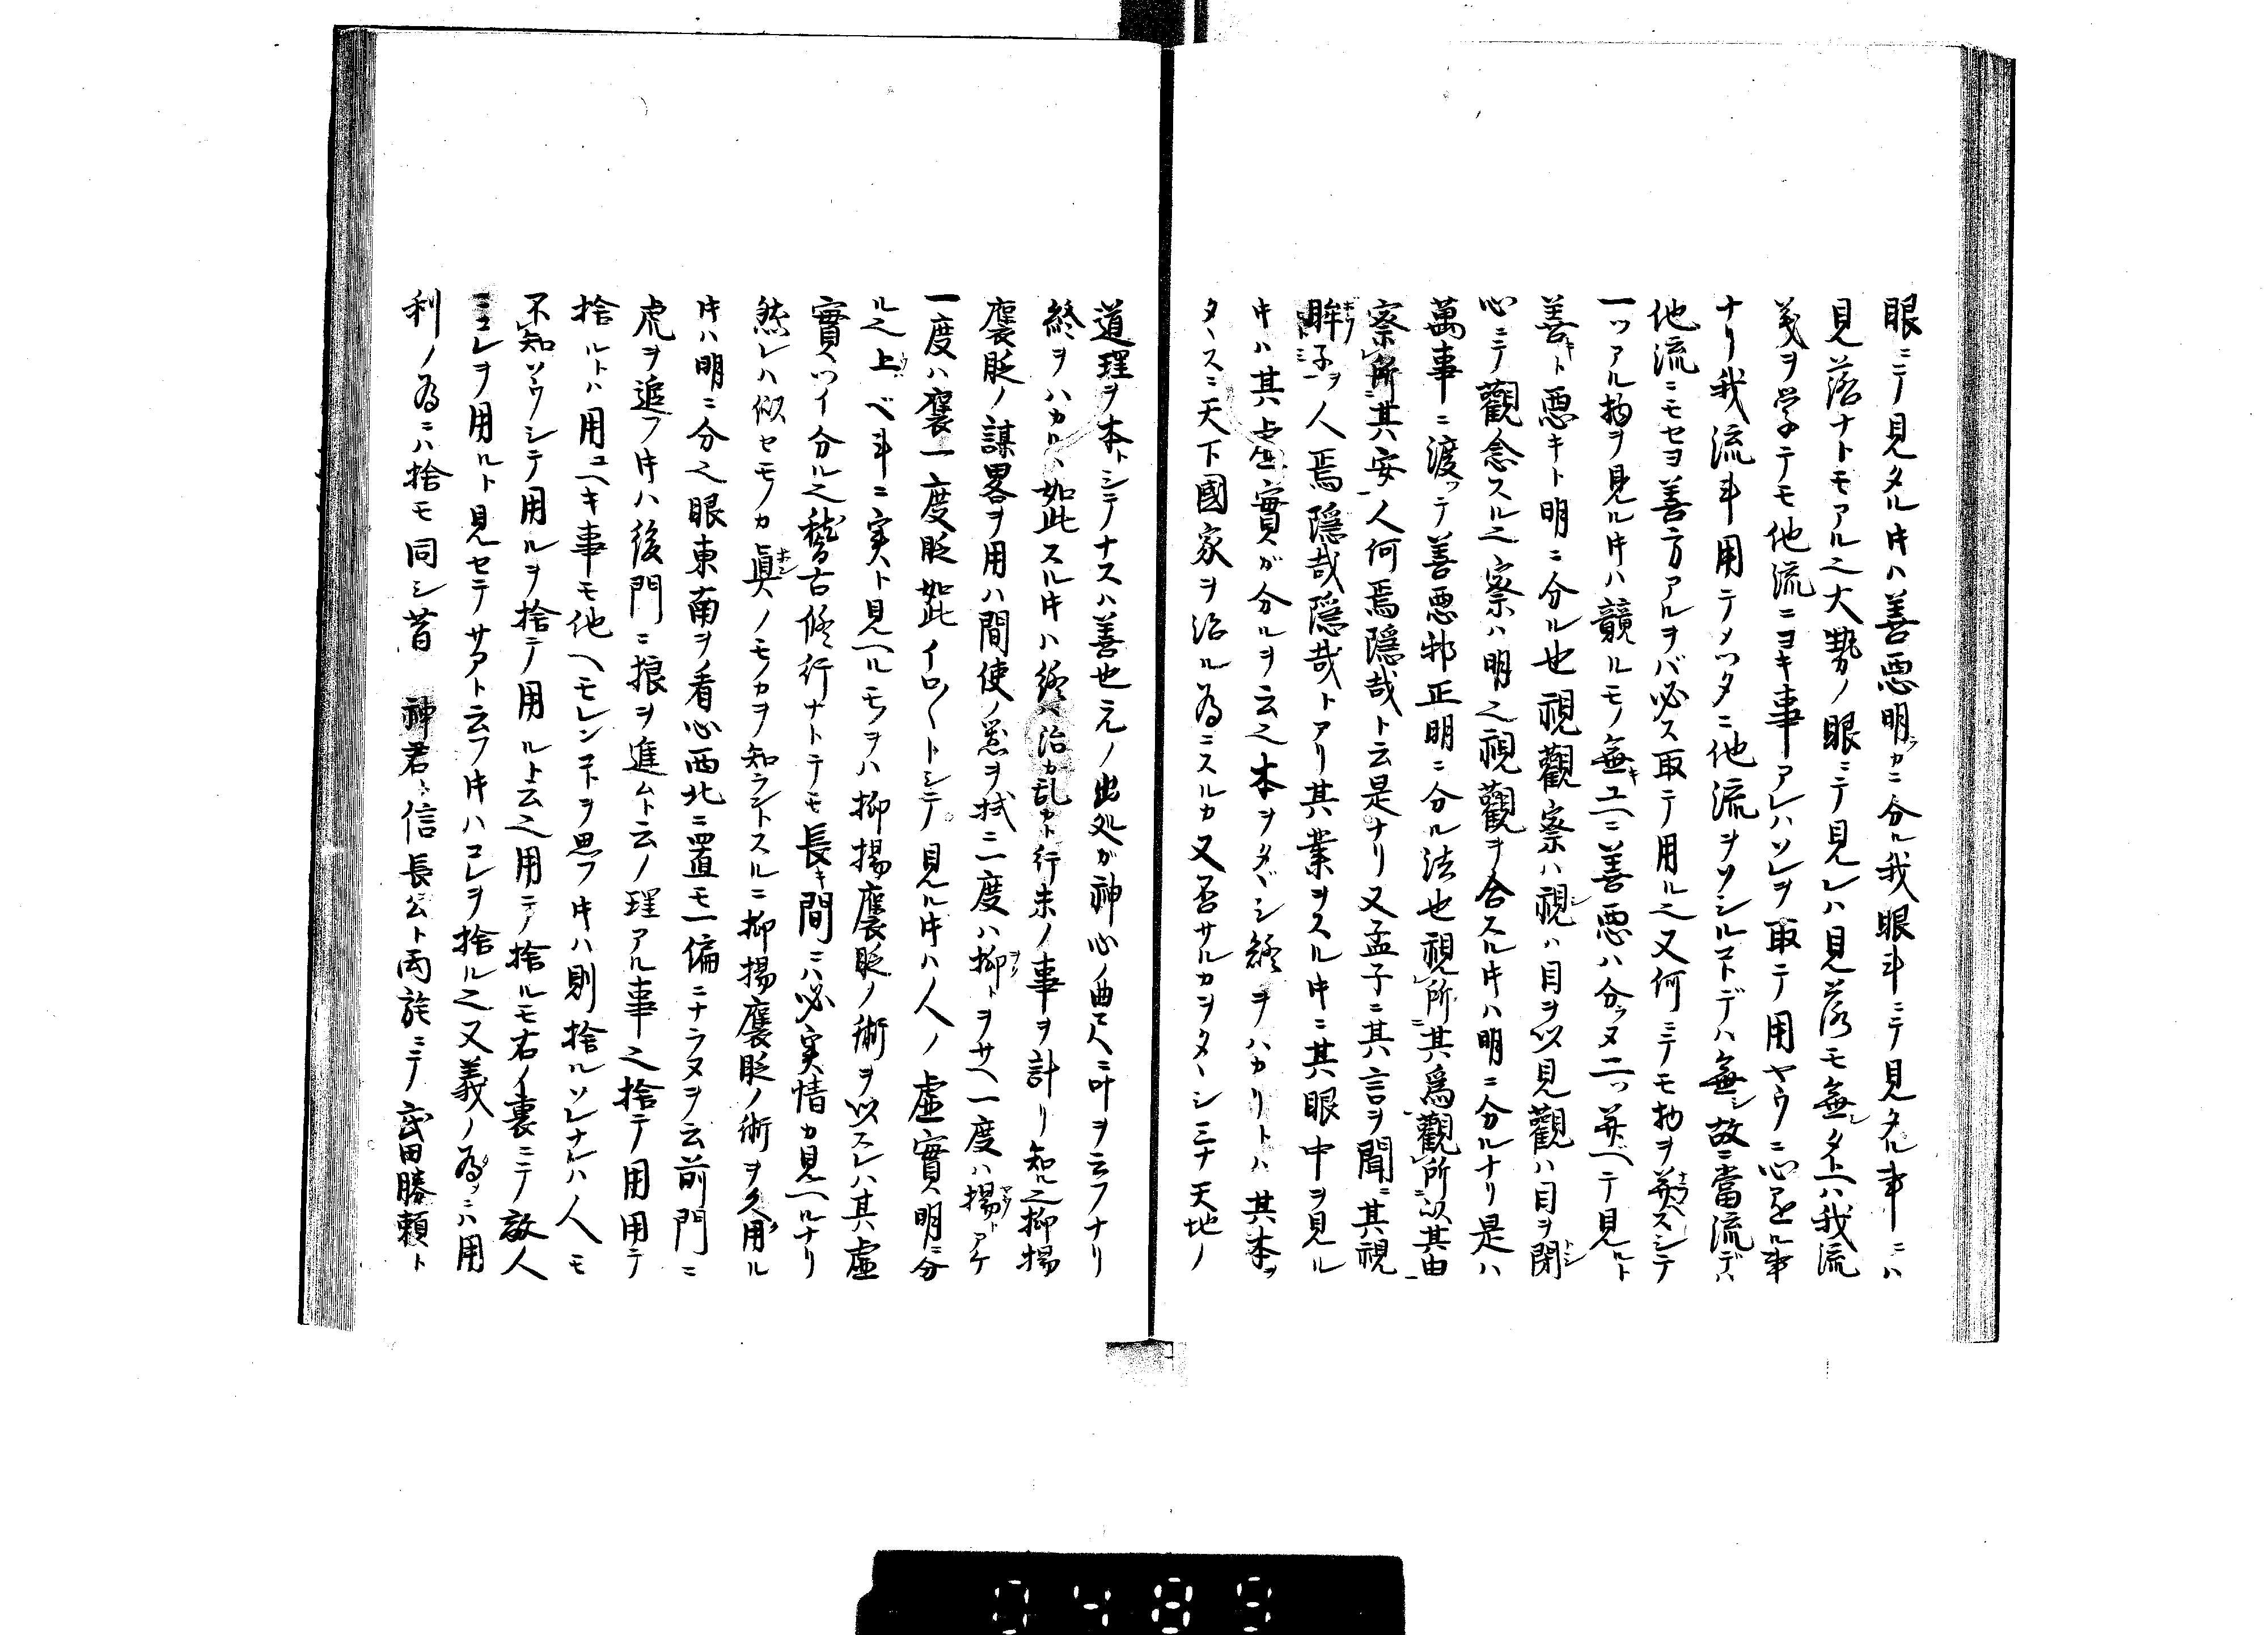 眼ニテ見タル㕝ハ善悪明カニ分ル我眼斗ニテ見タル事ニハ
見落ナトモアル之大勢ノ眼ニテ見レハ見落モ無シ夕トヘハ我流
義ヲ学テモ他流ニヨキ事アレハソレヲ取テ用ヤウニ心
ナリ我流斗用テノツタニ他流ヲソシルコトデハ無シ故ニ當流デハ
他流ニモセヨ善方アルヲバ必ス取テ用ル之又何ニテモ物ヲ
一ツアル物ヲ見ル片ハ競ルモノ無キユヘニ善悪ハ分ラヌ二ツ并ヘテ見ルト
善キト悪キト明ニ分ル也視觀察ハ視ハ目ヲ以見觀ハ目ヲ閉
心ニテ觀念スル之察ハ明之視觀ヲ合スル片ハ明ニ分ルナリ是ハ
萬事ニ渡ツテ善悪邪正明ニ分ル法也視所其為觀所以其由
察所其安人何焉隠哉ト云是ナリ又孟子ニ其言ヲ聞ニ其視
眸子ヲ人焉隠哉隠哉トアリ其業ヲスル片ニ其眼中ヲ見ル
片ハ其虚實が分ルヲ云之本ヲタヾシ終ヲハカリトハ其本ヲ
タヽスニ天下國家ヲ治ル為ニスルカ又否サルカヲタヽシミテ天地ノ
道理ヲ本トシテナスハ善也元ノ出処が神心ノ曲尺ニ叶ヲ云フナリ
終ヲハカリハ如此スル片ハ終ハ治カ乱カト行末ノ事ヲ計リ知ル之抑揚
襃貶ノ謀畧ヲ用ハ間使ノ忠ヲ拭ニ一度ハ抑トヲサヘ一度ハ揚トアケ
一度ハ襃一度貶如此イロ〱トシテ見ル片ハ人ノ虚實明ニ分
ル之上ベ斗ニ実ト見ヘルモノヲハ抑揚襃貶ノ術ヲ以スレハ其虚
實ツイ分ル之稽古修行ナトテモ長キ間ニハ必実情カ見ヘルナリ
然レハ似セモノカ眞ノモノカヲ知ラントスルニ抑揚襃貶ノ術ヲ用ル
片ハ明ニ分之眼東南ヲ看心西北ニ置モ一偏ニナラヌヲ云前門ニ
虎ヲ追フ片ハ後門ニ狼ヲ進ムト云ノ理アル事之捨テ用用テ
捨ルトハ用ユヘキ事モ他ヘモレンコトヲ思フ片ハ則捨ルソレナレハ人モ
不知ソウシテ用ルヲ捨テ用ルト云之用テ捨ルモ右ノ裏ニテ敵人
ニコレヲ用ルト見セテサアト云フ片ハコレヲ捨ル之又義ノ為ニハ用
利ノ為ニハ捨モ同シ昔　神君ト信長公ト両旗ニテ武田勝頼ト
0489